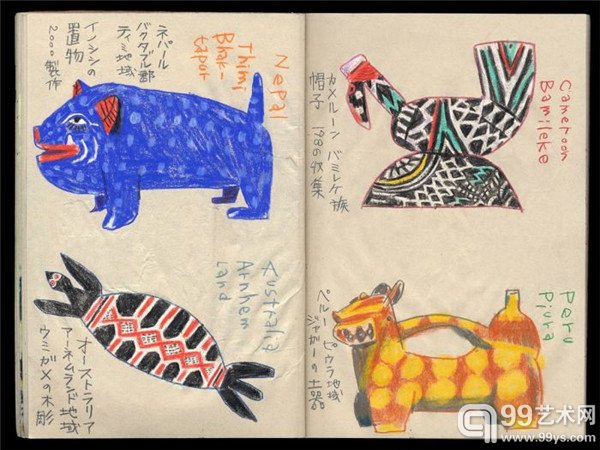 ネパール
バクタプル郡
ティミ地域
イノシシの
置物
2000製作
Nepal
Thimi
Bhak-
tapur
Australia
Arnhem
Land
オーストラリア
アーネムランド地域
ウミガメの木彫
Cameroon
Bamileke
カメルーン バミレケ族
帽子 1980収集
Peru
Piura
ペルー ピウラ地域
ジャガーの土器
99艺术网
www.99ys.com